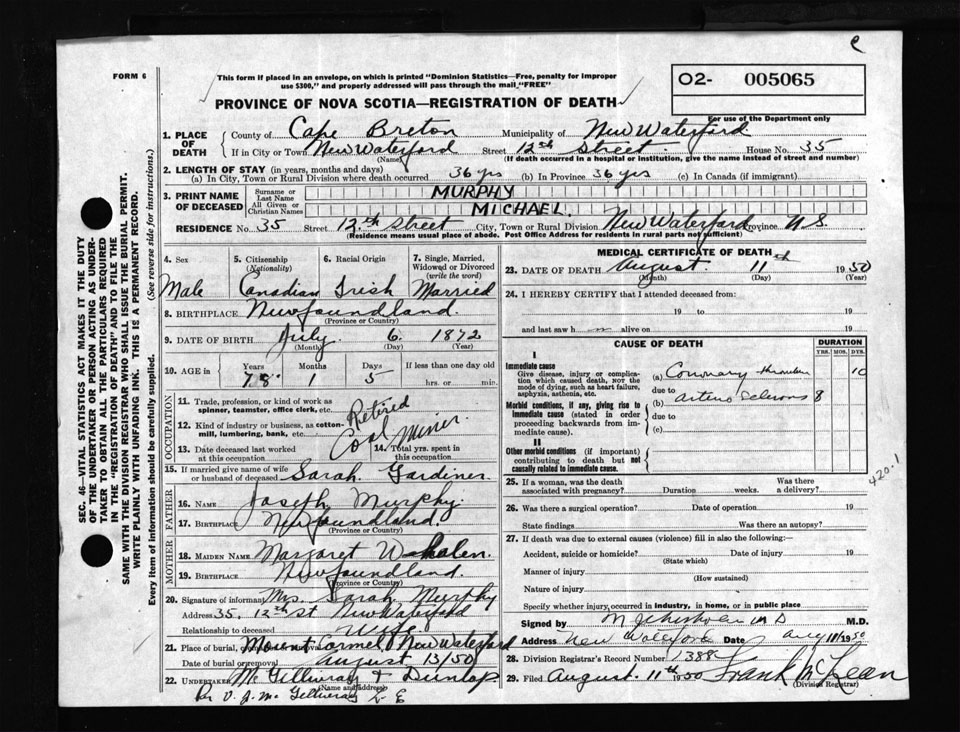 c
FORM 6
This form if placed in an envelope, on which is printed "Dominion Statistics—Free, penalty for improper
use $300," and properly addressed will pass through the mail "FREE"
O2- 005065
For use of the Department only
PROVINCE OF NOVA SCOTIA—REGISTRATION OF DEATH
SEC. 46—VITAL STATISTICS ACT MAKES IT THE DUTY
OF THE UNDERTAKER OR PERSON ACTING AS UNDER-
TAKER TO OBTAIN ALL THE PARTICULARS REQUIRED
IN THE "REGISTRATION OF DEATH" AND TO FILE THE
SAME WITH THE DIVISION REGISTRAR WHO SHALL ISSUE THE BURIAL PERMIT.
WRITE PLAINLY WITH UNFADING INK. THIS IS A PERMANENT RECORD.
Every item of information should be carefully supplied. (See reverse side for instructions.)
1. PLACE OF DEATH County of Cape Breton Municipality of New Waterford
If in City or Town New Waterford Street 12th Street. House No. 35
(Name) (If death occurred in a hospital or institution, give the name instead of street and number)
2. LENGTH OF STAY (in years, months and days)
(a) In City, Town or Rural Division where death occurred 36 yrs (b) In Province 36 yrs (c) In Canada (if immigrant)
3. PRINT NAME OF DECEASED Surname or Last Name MURPHY
All Given or Christian Names MICHAEL.
RESIDENCE No. 35 Street 12th Street City, Town or Rural Division New Waterford Province N S
(Residence means usual place of abode. Post Office Address for residents in rural parts not sufficient)
4. Sex Male
5. Citizenship (Nationality) Canadian
6. Racial Origin Irish
7. Single, Married, Widowed or Divorced (write the word) Married
8. BIRTHPLACE Newfoundland.
(Province or Country)
9. DATE OF BIRTH July 6 1872
(Month) (Day) (Year)
10. AGE in Years 78 Months 1 Days 5 If less than one day hrs. or min.
OCCUPATION
11. Trade, profession, or kind of work as
spinner, teamster, office clerk, etc. Retired
12. Kind of industry or business, as cotton-
mill, lumbering, bank, etc. Coal Miner
13. Date deceased last worked
at this occupation
14. Total yrs. spent in
this occupation
15. If married give name of wife
or husband of deceased Sarah Gardiner
FATHER
16. Name Joseph Murphy
17. Birthplace Newfoundland
(Province or Country)
MOTHER
18. Maiden Name Margaret Whalen.
19. Birthplace Newfoundland.
(Province or Country)
20. Signature of informant Mrs. Sarah Murphy
Address 35, 12th St New Waterford
Relationship to deceased Wife
21. Place of burial, cremation or removal Mount Carmel, New Waterford
Date of burial or removal August 13/50
22. UNDERTAKER McGillivray & Dunlop
(Name and Address)
Per J. McGillivray L E
MEDICAL CERTIFICATE OF DEATH
23. DATE OF DEATH August. 11th 1950
(Month) (Day) (Year)
24. I HEREBY CERTIFY that I attended deceased from:
19 to 19
and last saw h m alive on 19
CAUSE OF DEATH
DURATION
YRS. MOS. DYS.
I
Immediate cause
Give disease, injury or complica-
tion which caused death, NOT the
mode of dying, such as heart failure,
asphyxia, asthenia, etc.
(a) Coronary 10
due to
Morbid conditions, if any, giving rise to
immediate cause (stated in order
proceeding backwards from im-
mediate cause).
(b) Arterio Sclerosis 8
due to
(c)
II
Other morbid conditions (if important)
contributing to death but not
causally related to immediate cause.
420.1
25. If a woman, was the death
associated with pregnancy? Duration weeks. Was there a delivery?
26. Was there a surgical operation? Date of operation 19
State findings Was there an autopsy?
27. If death was due to external causes (violence) fill in also the following:
Accident, suicide or homicide? Date of injury 19
(State which)
Manner of injury
(How sustained)
Nature of injury
Specify whether injury occurred in industry, in home, or in public place
Signed by M D M.D.
Address New Waterford Date Aug 11/1950
28. Division Registrar's Record Number 1388
29. Filed August. 11th 1950 Frank McLean
(Division Registrar)